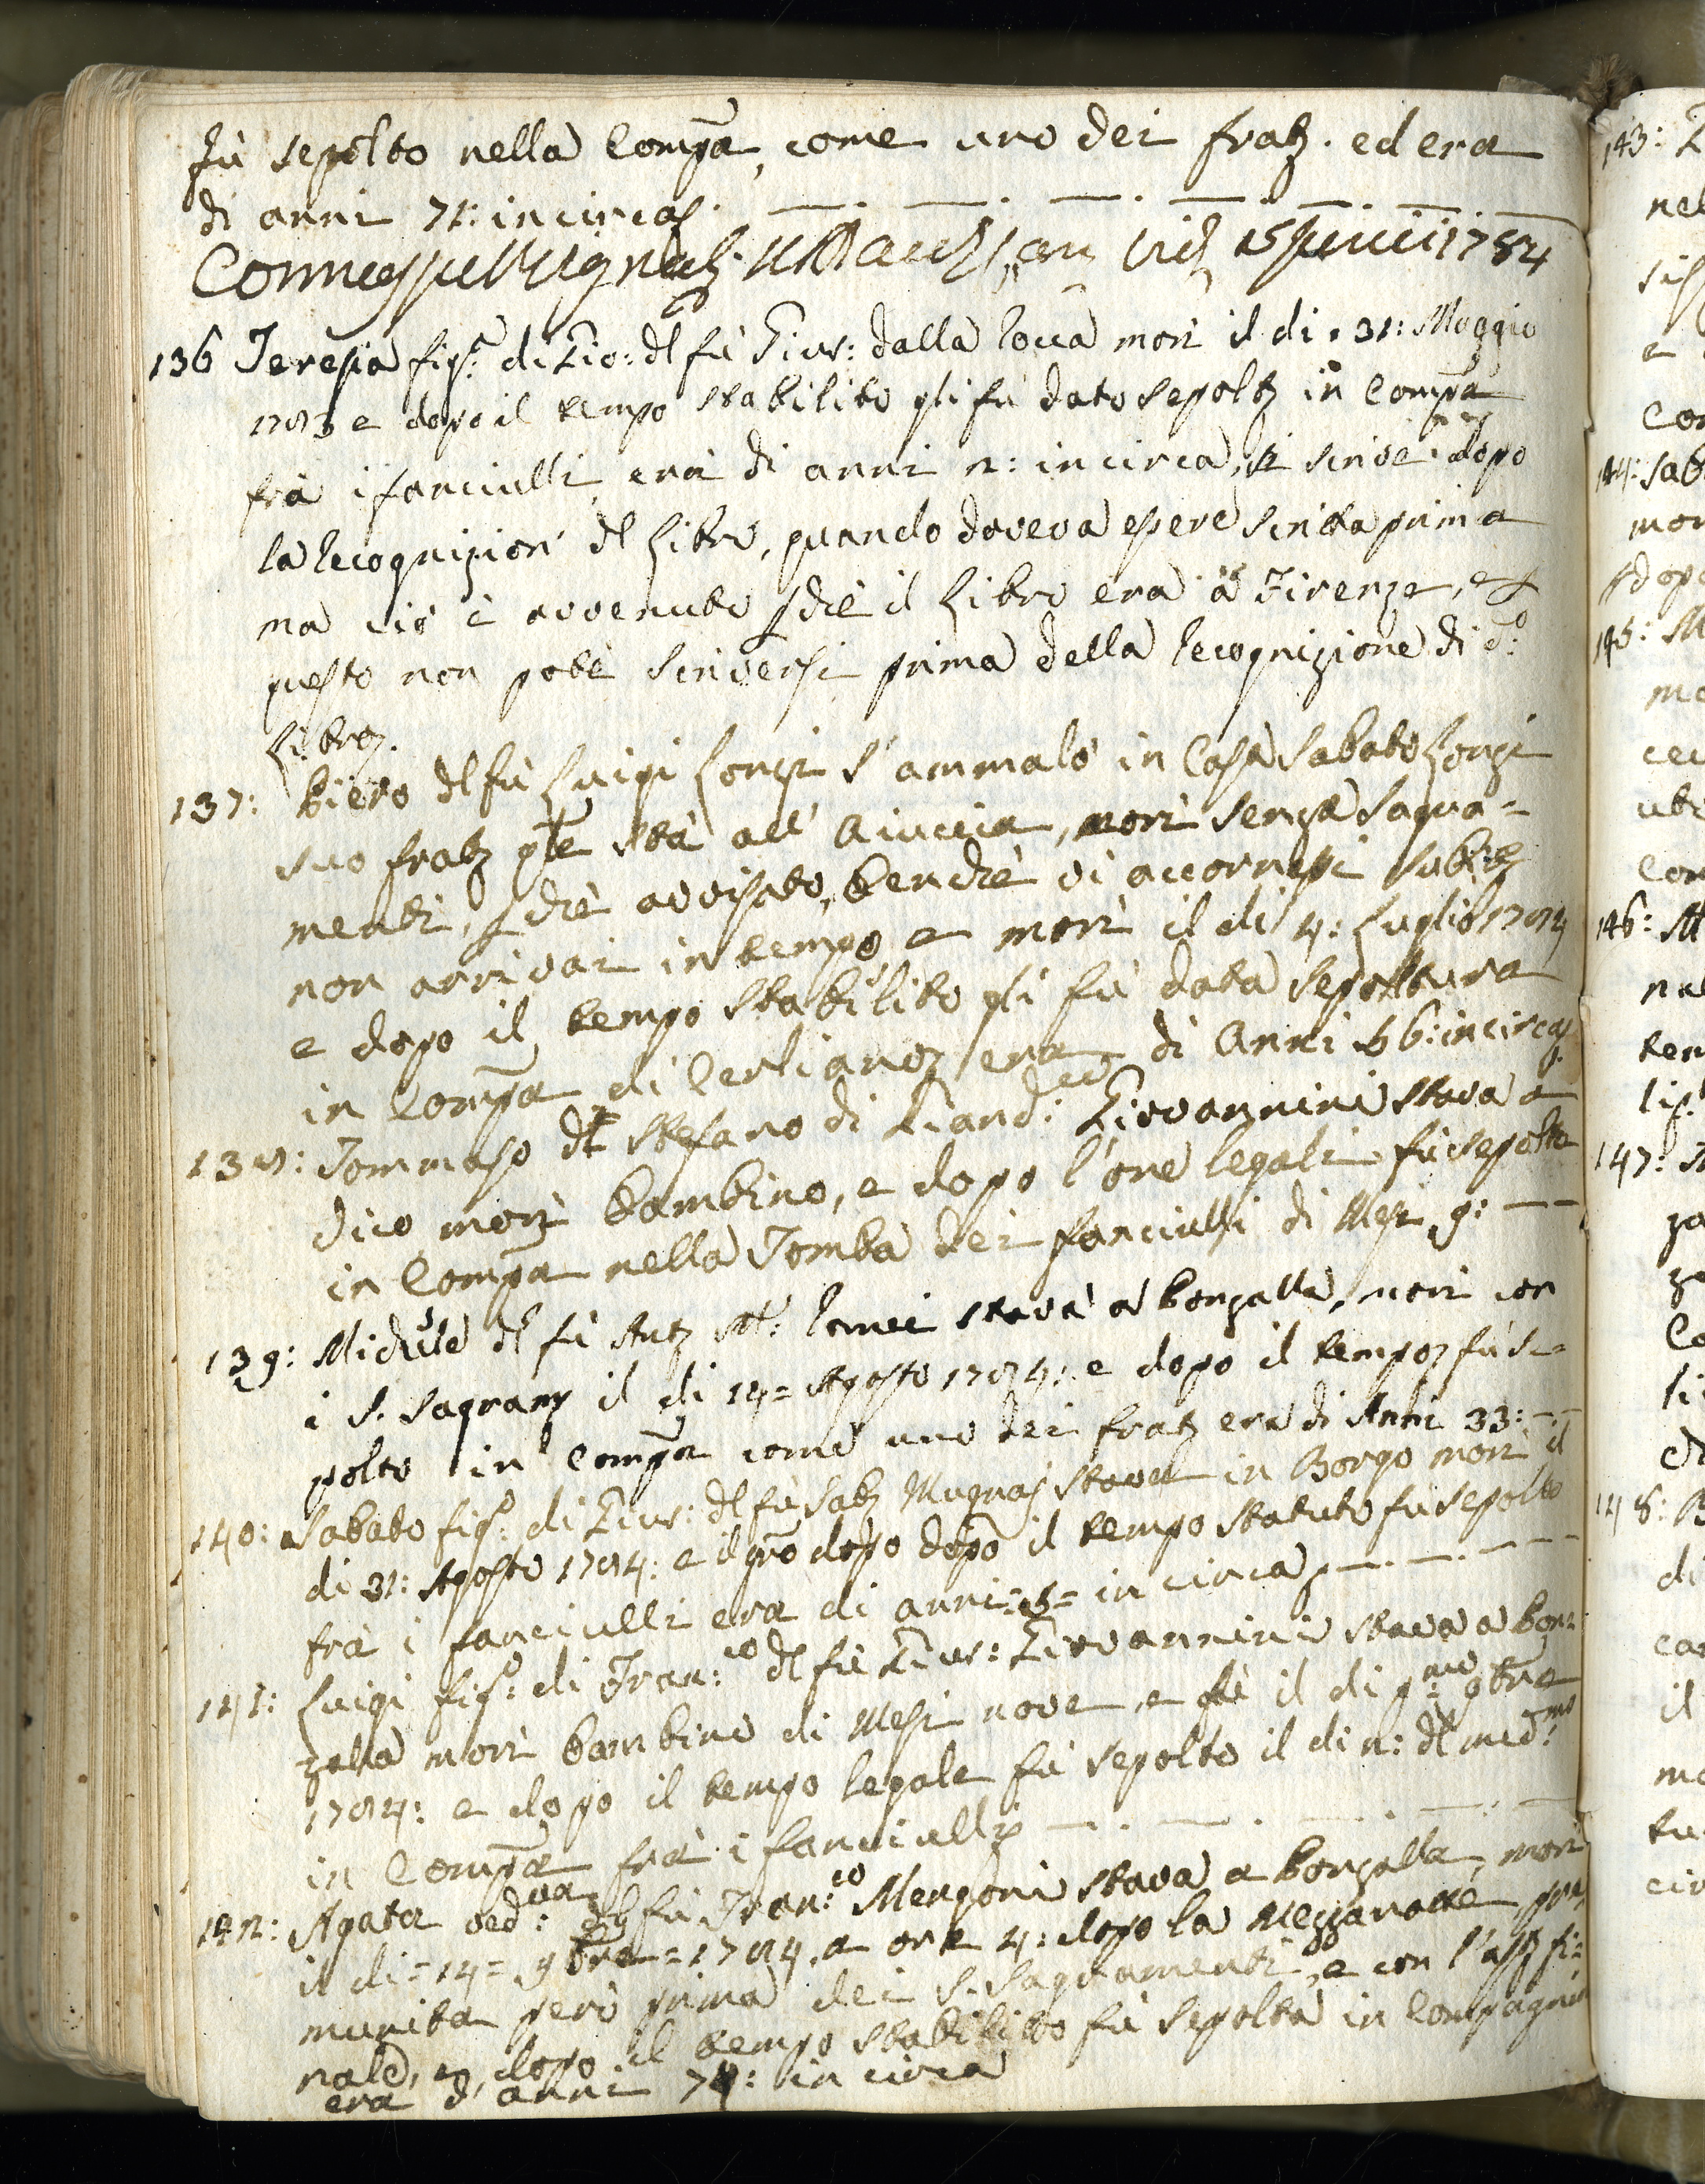 fù sepolto nella Compª, come uno dei fratz. ed era
di anni 71: incirca.
15 1784
136 Teresia figª: di Gio: dl fù Gius: dalla morì il di: 31: Maggio
e dopo il tempo stabilito gli fù dato sepoltz in Compª
frà i fanciulli, era di anni 2: incirca, si scrive dopo
la recognizion dl Libro, quando doveva essere scritta prima
ma ciò è avvenuto perchè il Libro era à Firenze, e per
questo non potè scriversi prima della recognizione di dº:
Libro.
137: Piero dl fù Luigi Longi s'ammalò in Casa Sabato Longi
suo fratz qle stà all' Aiuccia, morì senza Sagra=
menti, perchè avvisato, benchè vi accorressi subito
non arrivai in tempo, e morì il di 4: Luglio 1784
e dopo il tempo stabilito gli fù data sepoltura
in Compª di Cerliano, era di Anni 66: incirca
138: Tommaso dl Stefano di Giandᶜᵒ: Giovannini stava a
dico morì bambino, e dopo l'ore legali fù sepolto
in Compª nella Tomba dei fanciulli di Mesi 9:
139: Michele dl fù Antº Mª: stava a Bonzalla, morì con
i S. Sagramᵢ il di 14= Agosto 1784: e dopo il tempo fù se=
polto in Compª come uno dei fratz era di Anni 33:
140: Sabato figº: di Gius: dl fù Sabº Mugnai stava in Borgo morì il
di 31: Agosto 1784: e il grõ dopo dopo il tempo statuto fu sepolto
frà i fanciulli era di anni =5= in circa
141: Luigi figº: di Fran:ᶜᵒ dl fù Gius: Giovannini stava a Bon=
zalla morì bambino di Mesi nove, e fù il di pᵐᵒ: 9bre
1784: e dopo il tempo legale fù sepolto il di 2: dl medᵐᵒ:
in Compª frà i fanciulli
142: Agata vedᵛᵃ: dl fù Fran:ᶜᵒ Mengoni stava a Bonzalla, morì
il di =14= 9bre =1784, a ore 4: dopo la Mezzanotte
munita però prima dei S. Sagramenti, e con l'assª fi=
nale, e, dopo il tempo stabilito fù sepolta in Compagnia
era d'anni 74: in circa
143:
144: Sab
mor
145: M
146: M
147:
148: B